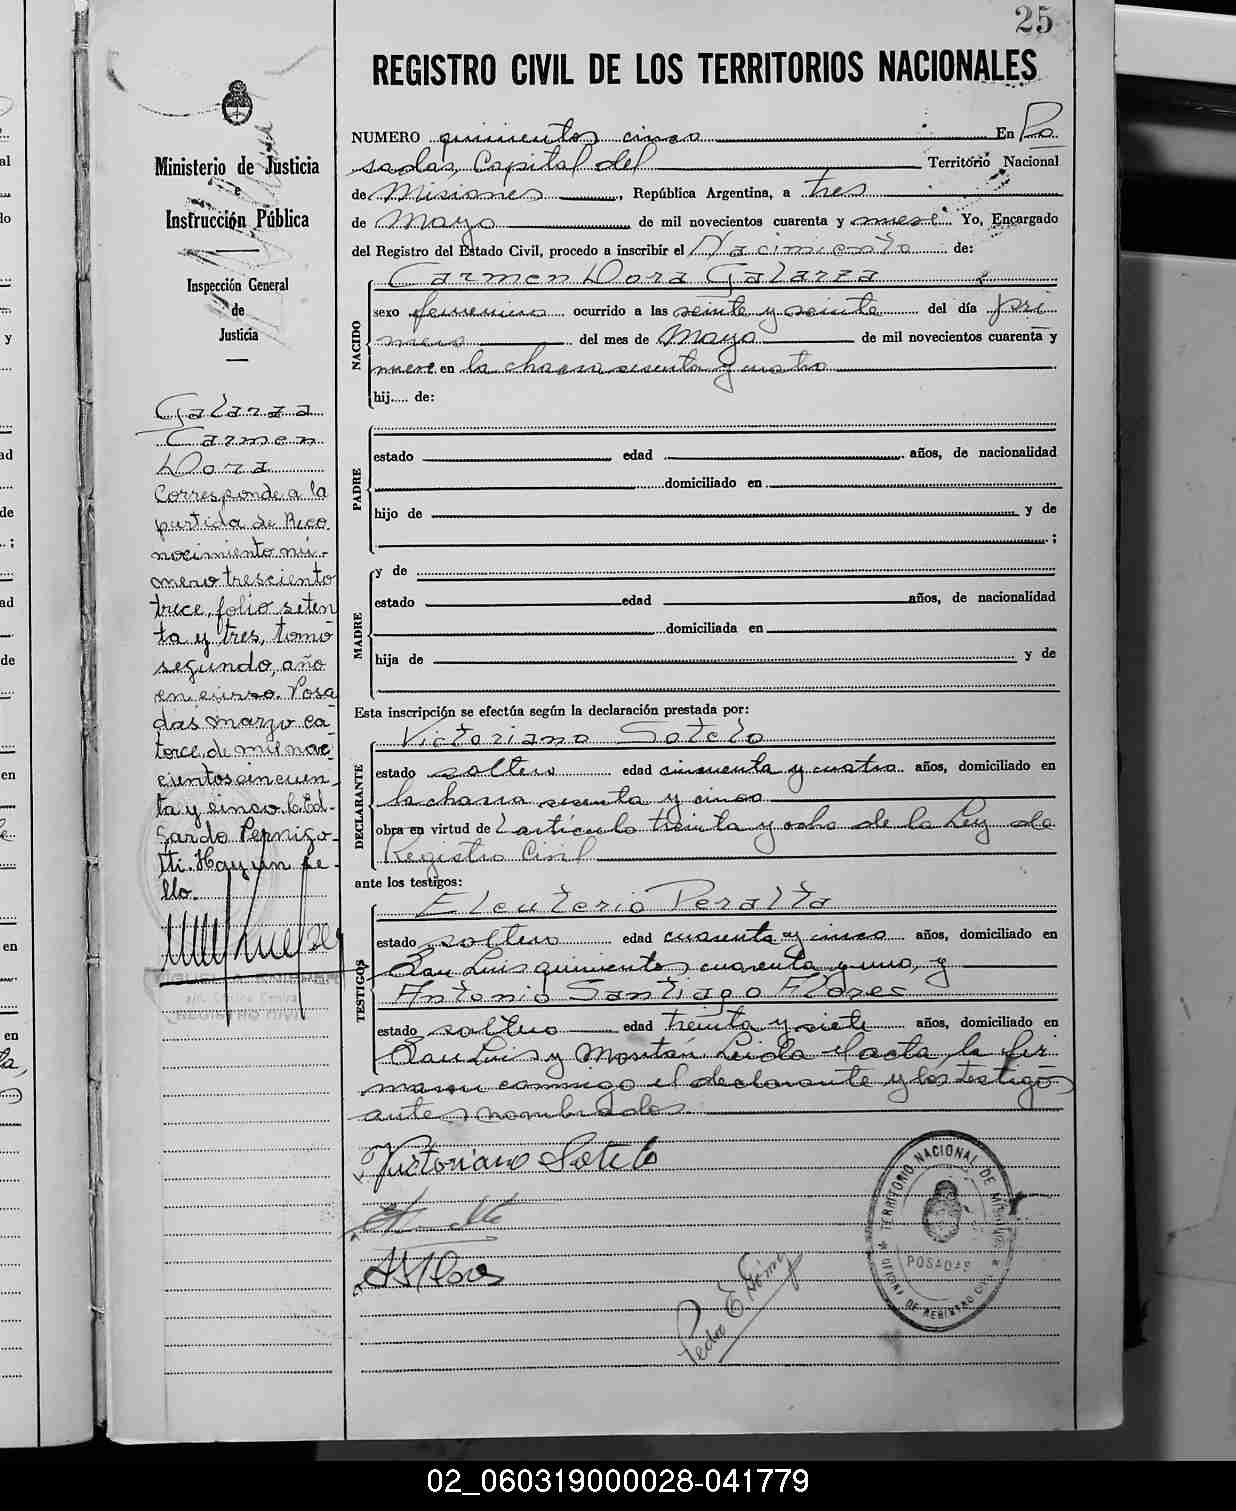 25
REGISTRO CIVIL DE LOS TERRITORIOS NACIONALES
Ministerio de Justicia
e
Instrucción Pública
Inspección General
de
Justicia
Galarza
Carmen
Dora
Corresponde a la
partida de Reco
nocimiento nú-
mero tresciento
trece, folio seten
ta y tres, tomo
segundo, año
en curso. Posa
das marzo ca-
torce de mil nove
cientos cincuen-
ta y cinco. C. Ed-
gardo Pernigo-
tti. Hay un se-
llo.
NUMERO quinientos cinco En Po
sadas, Capital del Territorio Nacional
de Misiones, República Argentina, a tres
de Mayo de mil novecientos cuarenta y nueve Yo, Encargado
del Registro del Estado Civil, procedo a inscribir el Nacimiento de:
NACIDO
Carmen Dora Galarza
sexo femenino ocurrido a las veinte y veinte del día pri
mero del mes de Mayo de mil novecientos cuarenta y
nueve en la chacra sesenta y cuatro
hij.... de:
PADRE
estado edad años, de nacionalidad
domiciliado en
hijo de y de
;
MADRE
y de
estado edad años, de nacionalidad
domiciliada en
hija de y de
Esta inscripción se efectúa según la declaración prestada por:
DECLARANTE
Victoriano Sotelo
estado soltero edad cincuenta y cuatro años, domiciliado en
la chacra sesenta y cinco
obra en virtud de l artículo treinta y ocho de la Ley de
Registro Civil
ante los testigos:
TESTIGOS
Eleuterio Peralta
estado soltero edad cuarenta y cinco años, domiciliado en
San Luis quinientos cuarenta y uno, y
Antonio Santiago Flores
estado soltero edad treinta y siete años, domiciliado en
San Luis y Leida el acta, la fir
man conmigo el declarante y los testigos
antes nombrados
Victoriano Sotelo
A S Flores
Pedro E. Gómez
TERRITORIO NACIONAL DE MISIONES
POSADAS
OFICINA DE REGISTRO CIVIL
02_060319000028-041779